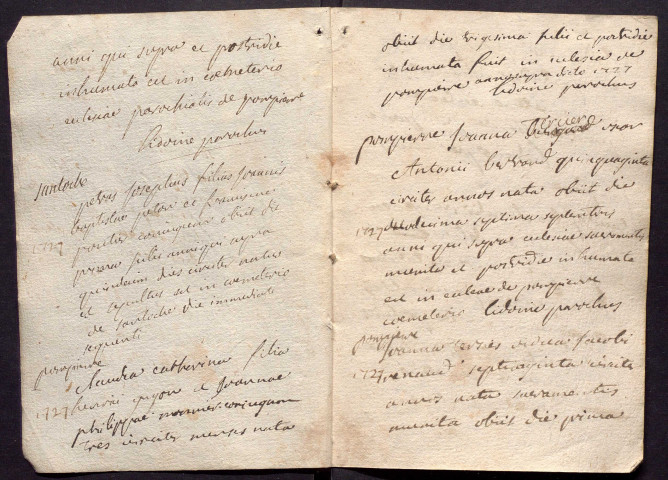 anni qui supra et postridie
inhumata est in cœmeterio
ecclesiae parochialis de pompierre
Lidoine parochus
Santoche
petrus Josephus filius Joannis
baptistae et francisce
conjugum obiit die
1727
prima julii anni qui supra
quindecim dies circiter natus
et sepultus est in cœmeterio
de santoche die immediate
sequenti
pompierre
Claudia catherina filia
1727 henrici et Joannae
philippae conjugum
tres circiter menses nata
obiit die vigesima julii et postridie
inhumata fuit in ecclesia de
pompierre anno supradicto 1727
Lidoine parochus
pompierre Joanna uxor
Antonii berrand quinquaginta
circiter annos nata obiit die
1727 duodecima septima septembris
anni qui supra ecclesiae sacramentis
munita et postridie inhumata
est in ecclesiae de pompierre
cœmeterio Lidoine parochus
pompierre
Joanna vidua Jacobi
1727 renaud septuaginta circiter
annos nata sacramentis
munita obiit die prima